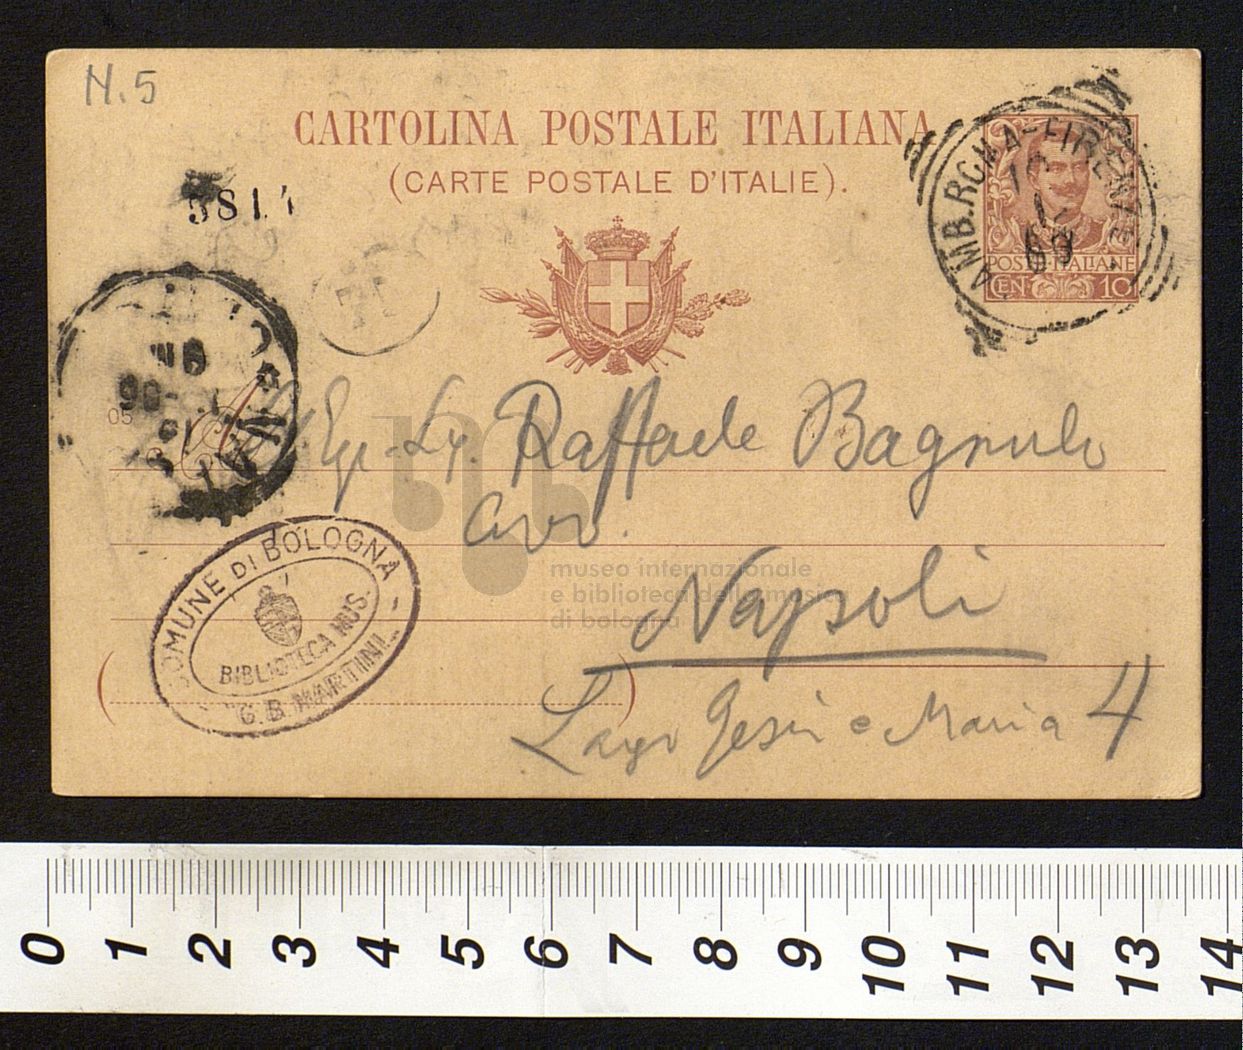 N. 5
CARTOLINA POSTALE ITALIANA
(CARTE POSTALE D'ITALIE).
5814
AMB. ROMA-FIRENZE
POSTE ITALIANE
CEN 10
05
Raffaele Bagnulo
Avv.
Napoli
Largo Gesù e Maria 4
COMUNE DI BOLOGNA
BIBLIOTECA MUS.
"G. B. MARTINI"
museo internazionale
e biblioteca della musica
di bologna
0 1 2 3 4 5 6 7 8 9 10 11 12 13 14